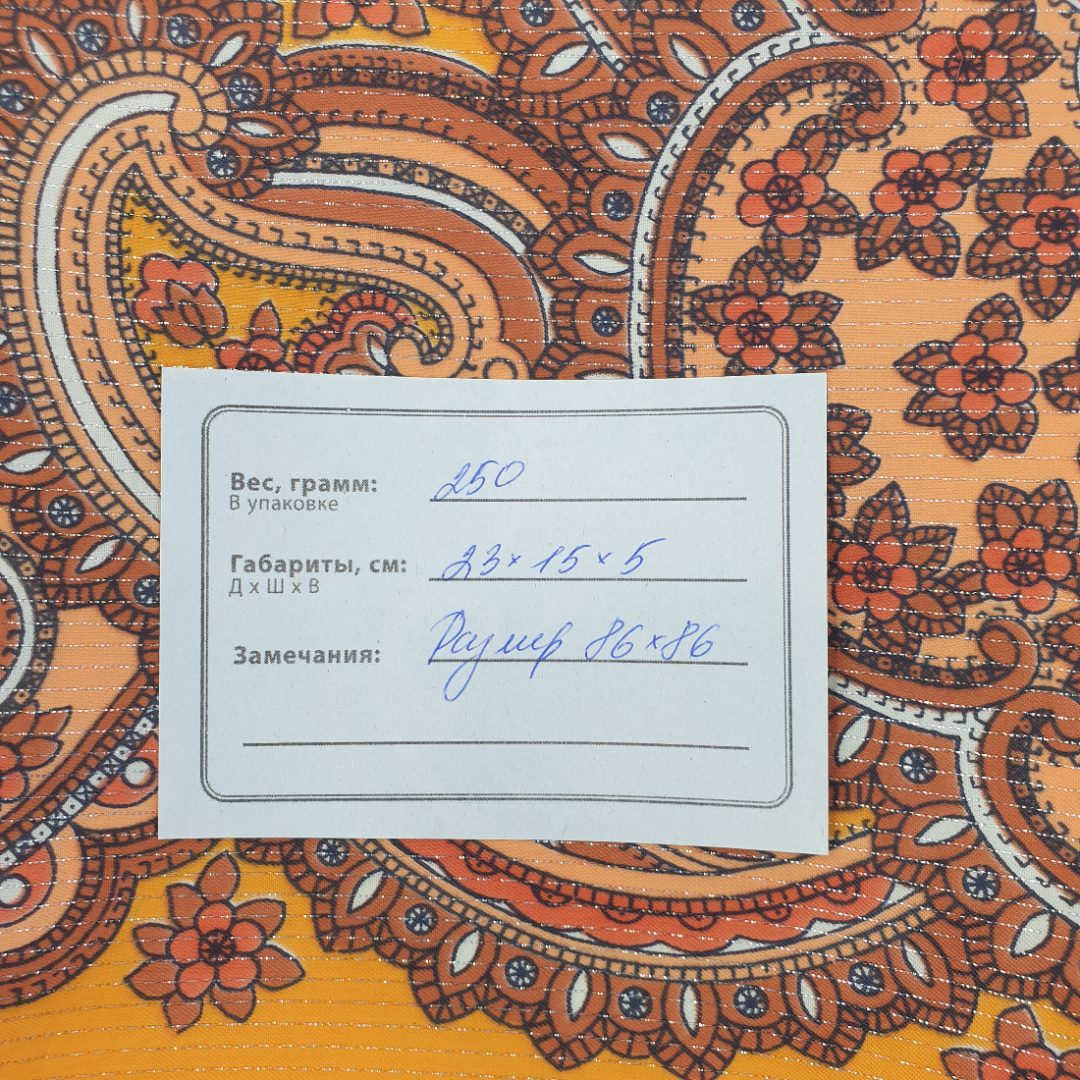 Вес, грамм: 250
В упаковке
Габариты, см: 23 × 15 × 5
Д x Ш x В
Замечания: Размер 86 × 86